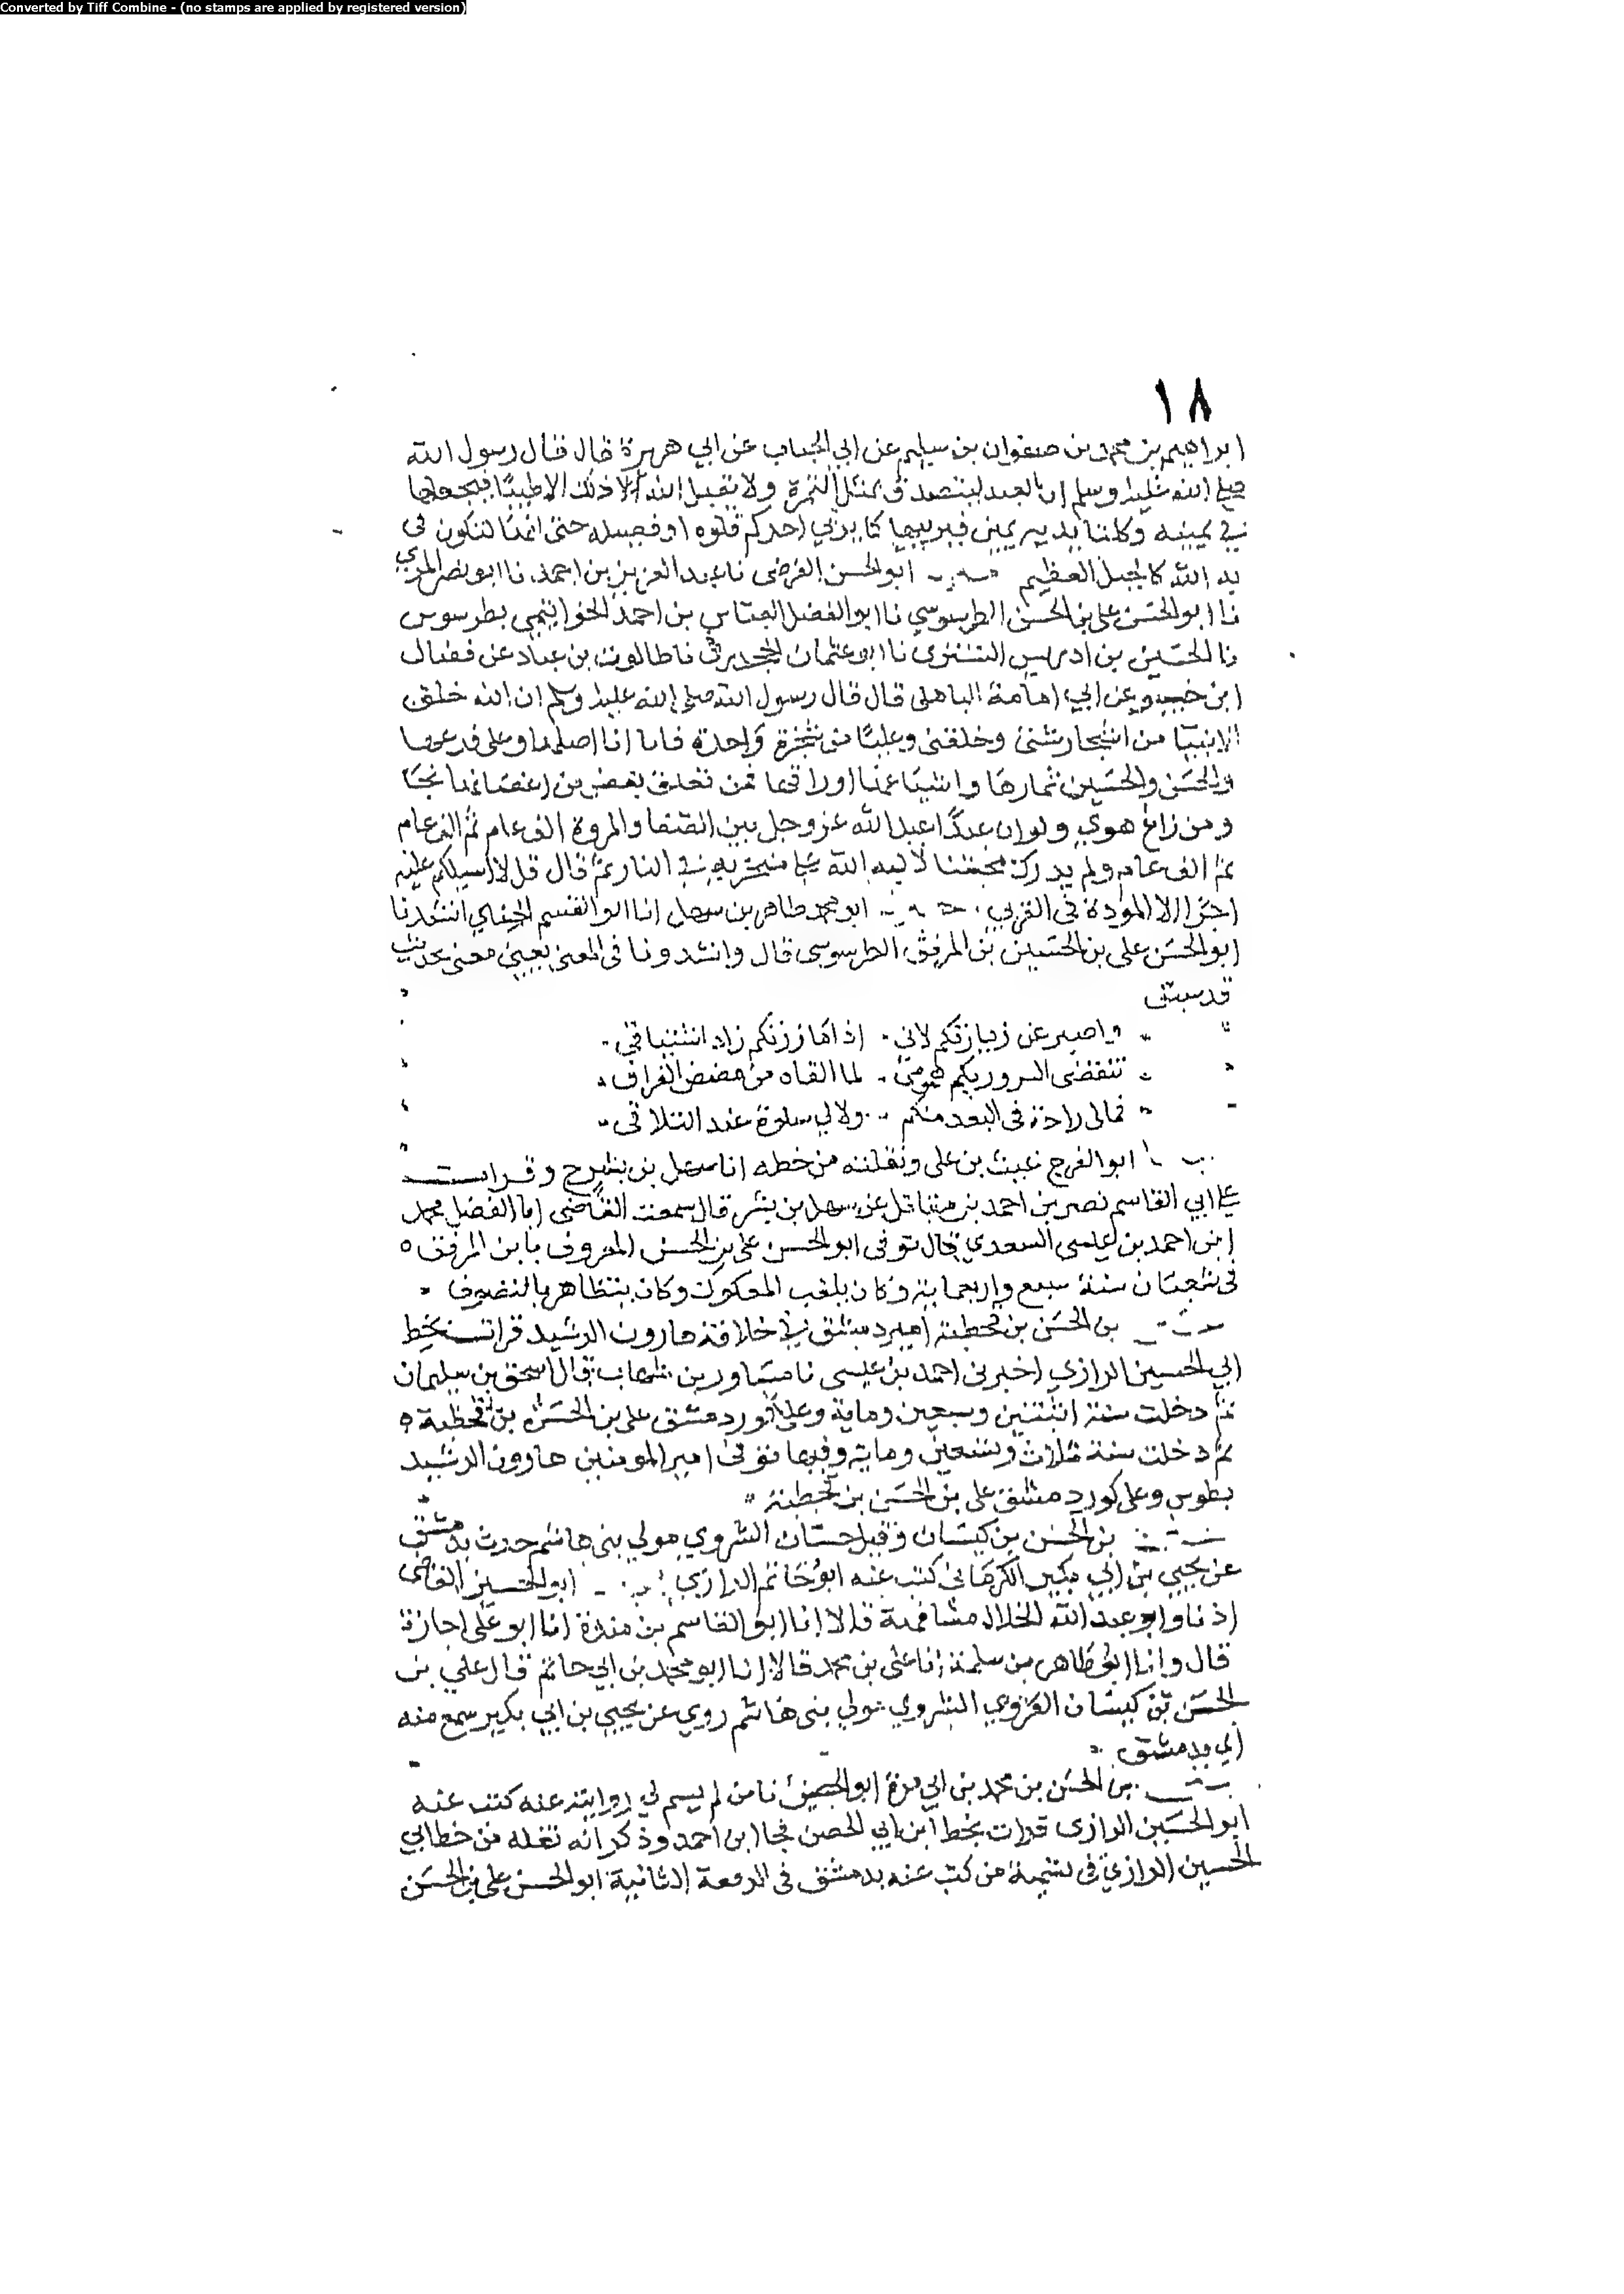 Converted by Tiff Combine - (no stamps are applied by registered version)
١٨
ابراهيم بن محمد بن صفوان بن سليم عن ابي الحباب عن ابي هريرة قال قال رسول الله
صلى الله عليه وسلم ان العبد ليتصدق بمثل التمرة ولا يقبل الله الا ذلك الا طيبًا فيجعلها
في يمينه وكلتا يديه يمين فيربيها كما يربي احدكم فلوه او فصيله حتى انها لتكون في
يد الله كالجبل العظيم ابو الحسن الفرضي نا عبد العزيز بن احمد نا ابو نصر المري
نا ابو الحسن علي بن الحسن الطرسوسي نا ابو الفضل العباس بن احمد الخواتيمي بطرسوس
نا الحسين بن ادريس التستري نا ابو عثمان الجحدري نا طالوت بن عباد عن فضال
ابن جبير عن ابي امامة الباهلي قال قال رسول الله صلى الله عليه وسلم ان الله خلق
الانبيا من اشجار شتى وخلقني وعليًا من شجرة واحدة فانا اصلها وعلي فرعها
والحسن والحسين ثمارها واشياعنا اوراقها فمن تعلق بغصن من اغصانها نجا
ومن زاغ هوي ولو ان عبدًا عبد الله عز وجل بين الصفا والمروة الف عام ثم الف عام
ثم الف عام ولم يدرك محبتنا لاكبه الله على منخريه في النار ثم قال قل لا اسيلكم عليه
اجرًا الا المودة في القربي ابو محمد طاهر بن سهل انا ابو القسم الحنايي انشدنا
ابو الحسن علي بن الحسين بن المرفق الطرسوسي قال وانشدونا في المعنى يعني معنى حديث
قد سبق
واصبر عن زيارتكم لاني اذا ما زرتكم زاد اشتياقي
تنقضى السرور بكم همومي لما القاه من مضض الفراق
فمالي راحة في البعد منكم ولا لي سلوة عند التلاقي
ابو الفرج غيث بن علي ونقلته من خطه انا سهل بن بشر ح وقرات
على ابي القاسم نصر بن احمد بن مقاتل عن سهل بن بشر قال سمعت القاضي ابا الفضل محمد
ابن احمد بن عيسى السعدي قال توفي ابو الحسن علي بن الحسن المعروف بابن المرفق
في شعبان سنة سبع واربعماية وكان يلقب المعكوك وكان يتظاهر بالتصوف
بن الحسن بن قحطبة امير دمشق في خلافة هارون الرشيد قرات بخط
ابي الحسين الرازي اخبرني احمد بن عيسى نا مساور بن شهاب قال اسحق بن سليمان
ثم دخلت سنة اثنتين وسبعين وماية وعلى كور دمشق علي بن الحسن بن قحطبة
ثم دخلت سنة ثلاث وتسعين وماية وفيها توفى امير المومنين هارون الرشيد
بطوس وعلى كور دمشق علي بن الحسن بن قحطبة
بن الحسن بن كيسان وقيل حسان الشروي مولي بني هاشم حدث بدمشق
عن يحيي بن ابي بكير الكرماني كتب عنه ابو حاتم الرازي ابو الحسين القاضي
اذنا وابو عبد الله الخلال مشافهة قالا انا ابو القاسم بن مندة انا ابو علي اجازة
قال وانا ابو طاهر بن سلمة انا علي بن محمد قالا انا ابو محمد بن ابي حاتم قال علي بن
الحسن بن كيسان الشروي مولي بني هاشم روي عن يحيي بن ابي بكير سمع منه
ابي بدمشق
بن الحسن بن محمد بن ابي مرة نا من لم يسم لي روايته عنه كتب عنه
ابو الحسين الرازي قرات بخط ابن ابي الحصن نجا ابن احمد وذكر انه نقله من خط ابي
الحسين الرازي في تسمية من كتب عنه بدمشق في الدفعة الثانية ابو الحسن علي بن الحسن